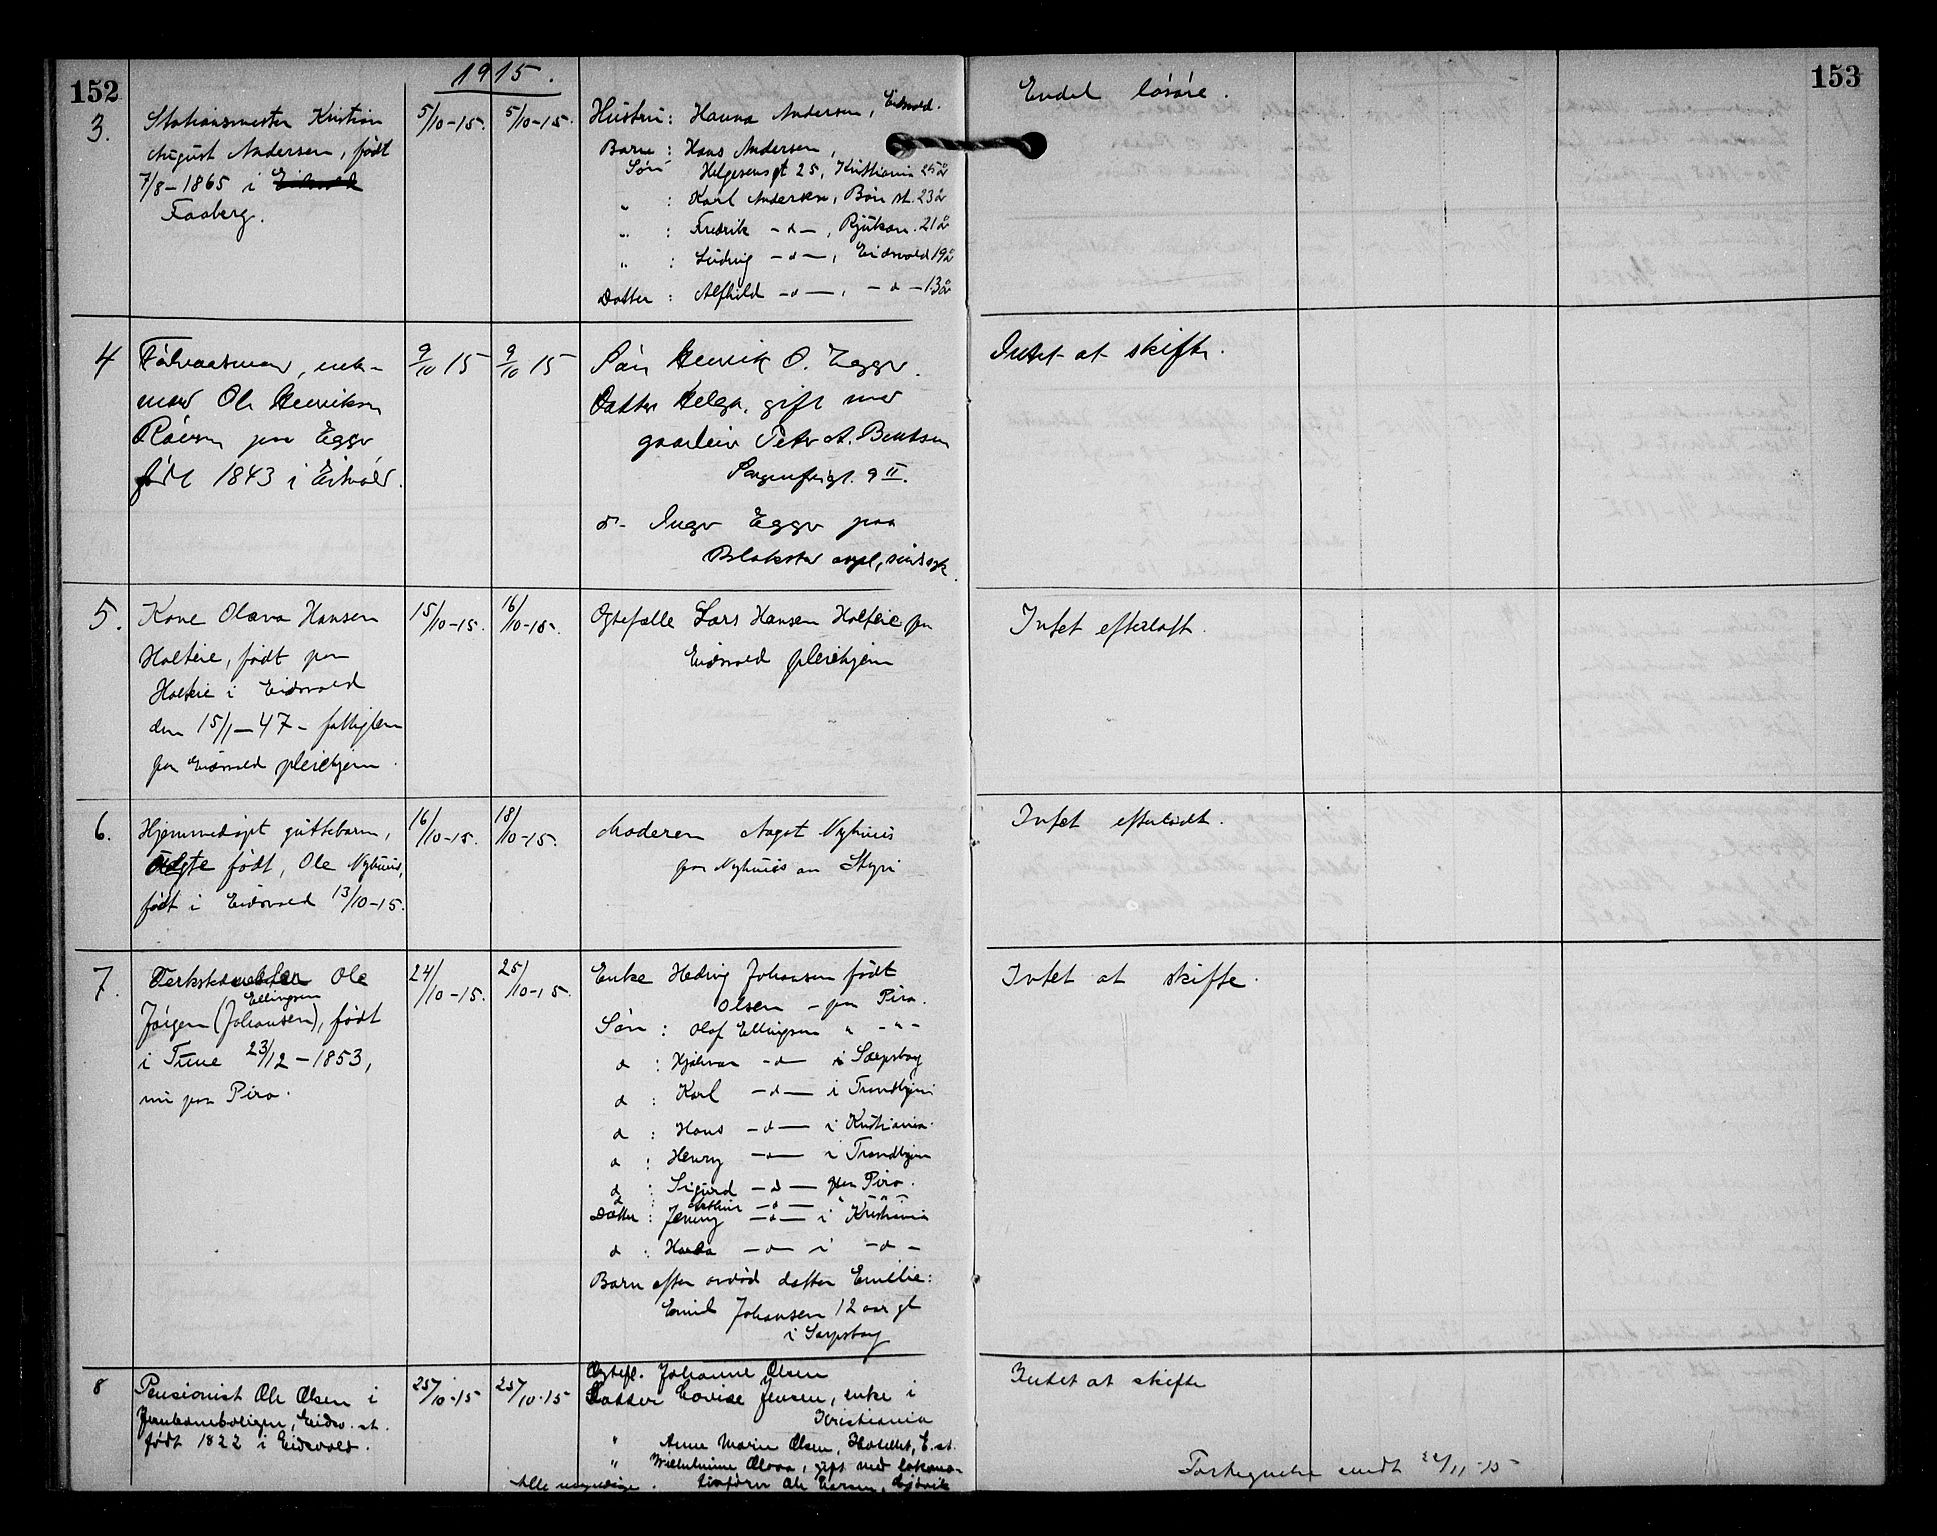 152
1915.
153
3.
Stationsmester Kristian
August Andersen, født
7/8-1865 i Eidsvold
Faaberg.
5/10-15.
5/10-15.
Hustru: Hanna Andersen, Eidsvold.
Barn: Hans Andersen,
Søn Helgesensgt 25, Kristiania 25 å
„ : Karl Andersen, Bøn st. 23 å
„ : Fredrik -d-, Rjukan. 21 å
„ : Ludvig -d-, Eidsvold 19 å
Datter: Alfhild -d-, -d- 13 å
Endel løsøre.
4
Følraadsmand, enke-
mand Ole Henriksen
paa Egge
født 1843 i Eidsvold.
9/10 15
9/10 15
Søn Henrik O. Egge.
Datter Helga, gift med
Peter A. Bentsen
Sorgenfrigt. 9 II.
d- Inga Egge paa
Blakstad asyl, sindssyk.
Intet at skifte.
5.
Kone Olava Hansen
Holteie, født paa
Holteie i Eidsvold
den 15/1-47- fattiglem
paa Eidsvold pleiehjem.
15/10-15.
16/10-15.
Egtefælle Lars Hansen Holteie paa
Eidsvold pleiehjem
Intet efterladt.
6.
Hjemmedøpt guttebarn,
født, Ole Nyhuus,
født i Eidsvold 13/10-15.
16/10-15.
18/10-15.
Moderen Aagot Nyhuus
paa Nyhuus av Styri
Intet efterladt.
7.
Ole
Ellingsen
Jørgen (Johansen), født
i Tune 23/12-1853,
nu paa Piro.
24/10-15.
25/10-15.
Enke Hedvig Johansen født
Olsen - paa Piro.
Søn: Olaf Ellingsen „ -„-
d : Hjalmar -d- i Sarpsborg
d : Karl -d- i Trondhjem
d : Hans -d- i Kristiania.
d : Henry -d- i Trondhjem
d : Sigurd -d- paa Piro.
d : Arthur -d- „ -„-
Datter: Jenny -d- i Kristiania
d : Hulda -d- i -d-
Barn efter avdød datter Emilie:
Emil Johansen 12 aar gl
i Sarpsborg
Intet at skifte.
8
Pensionist Ole Olsen i
Jernbaneboligen, Eidsv. st.
født 1822 i Eidsvold.
25/10-15
25/10-15
Egtef. Johanne Olsen
Datter Lovise Jensen, enke i
Kristiania
„ Anne Marie Olsen, Hotellet, E. st.
„ Wilhelmine Olava, gift med lokomo-
tivfører Ole Larsen, Gjøvik
Alle myndige.
Intet at skifte
Fortegnelse sendt 22/11-15